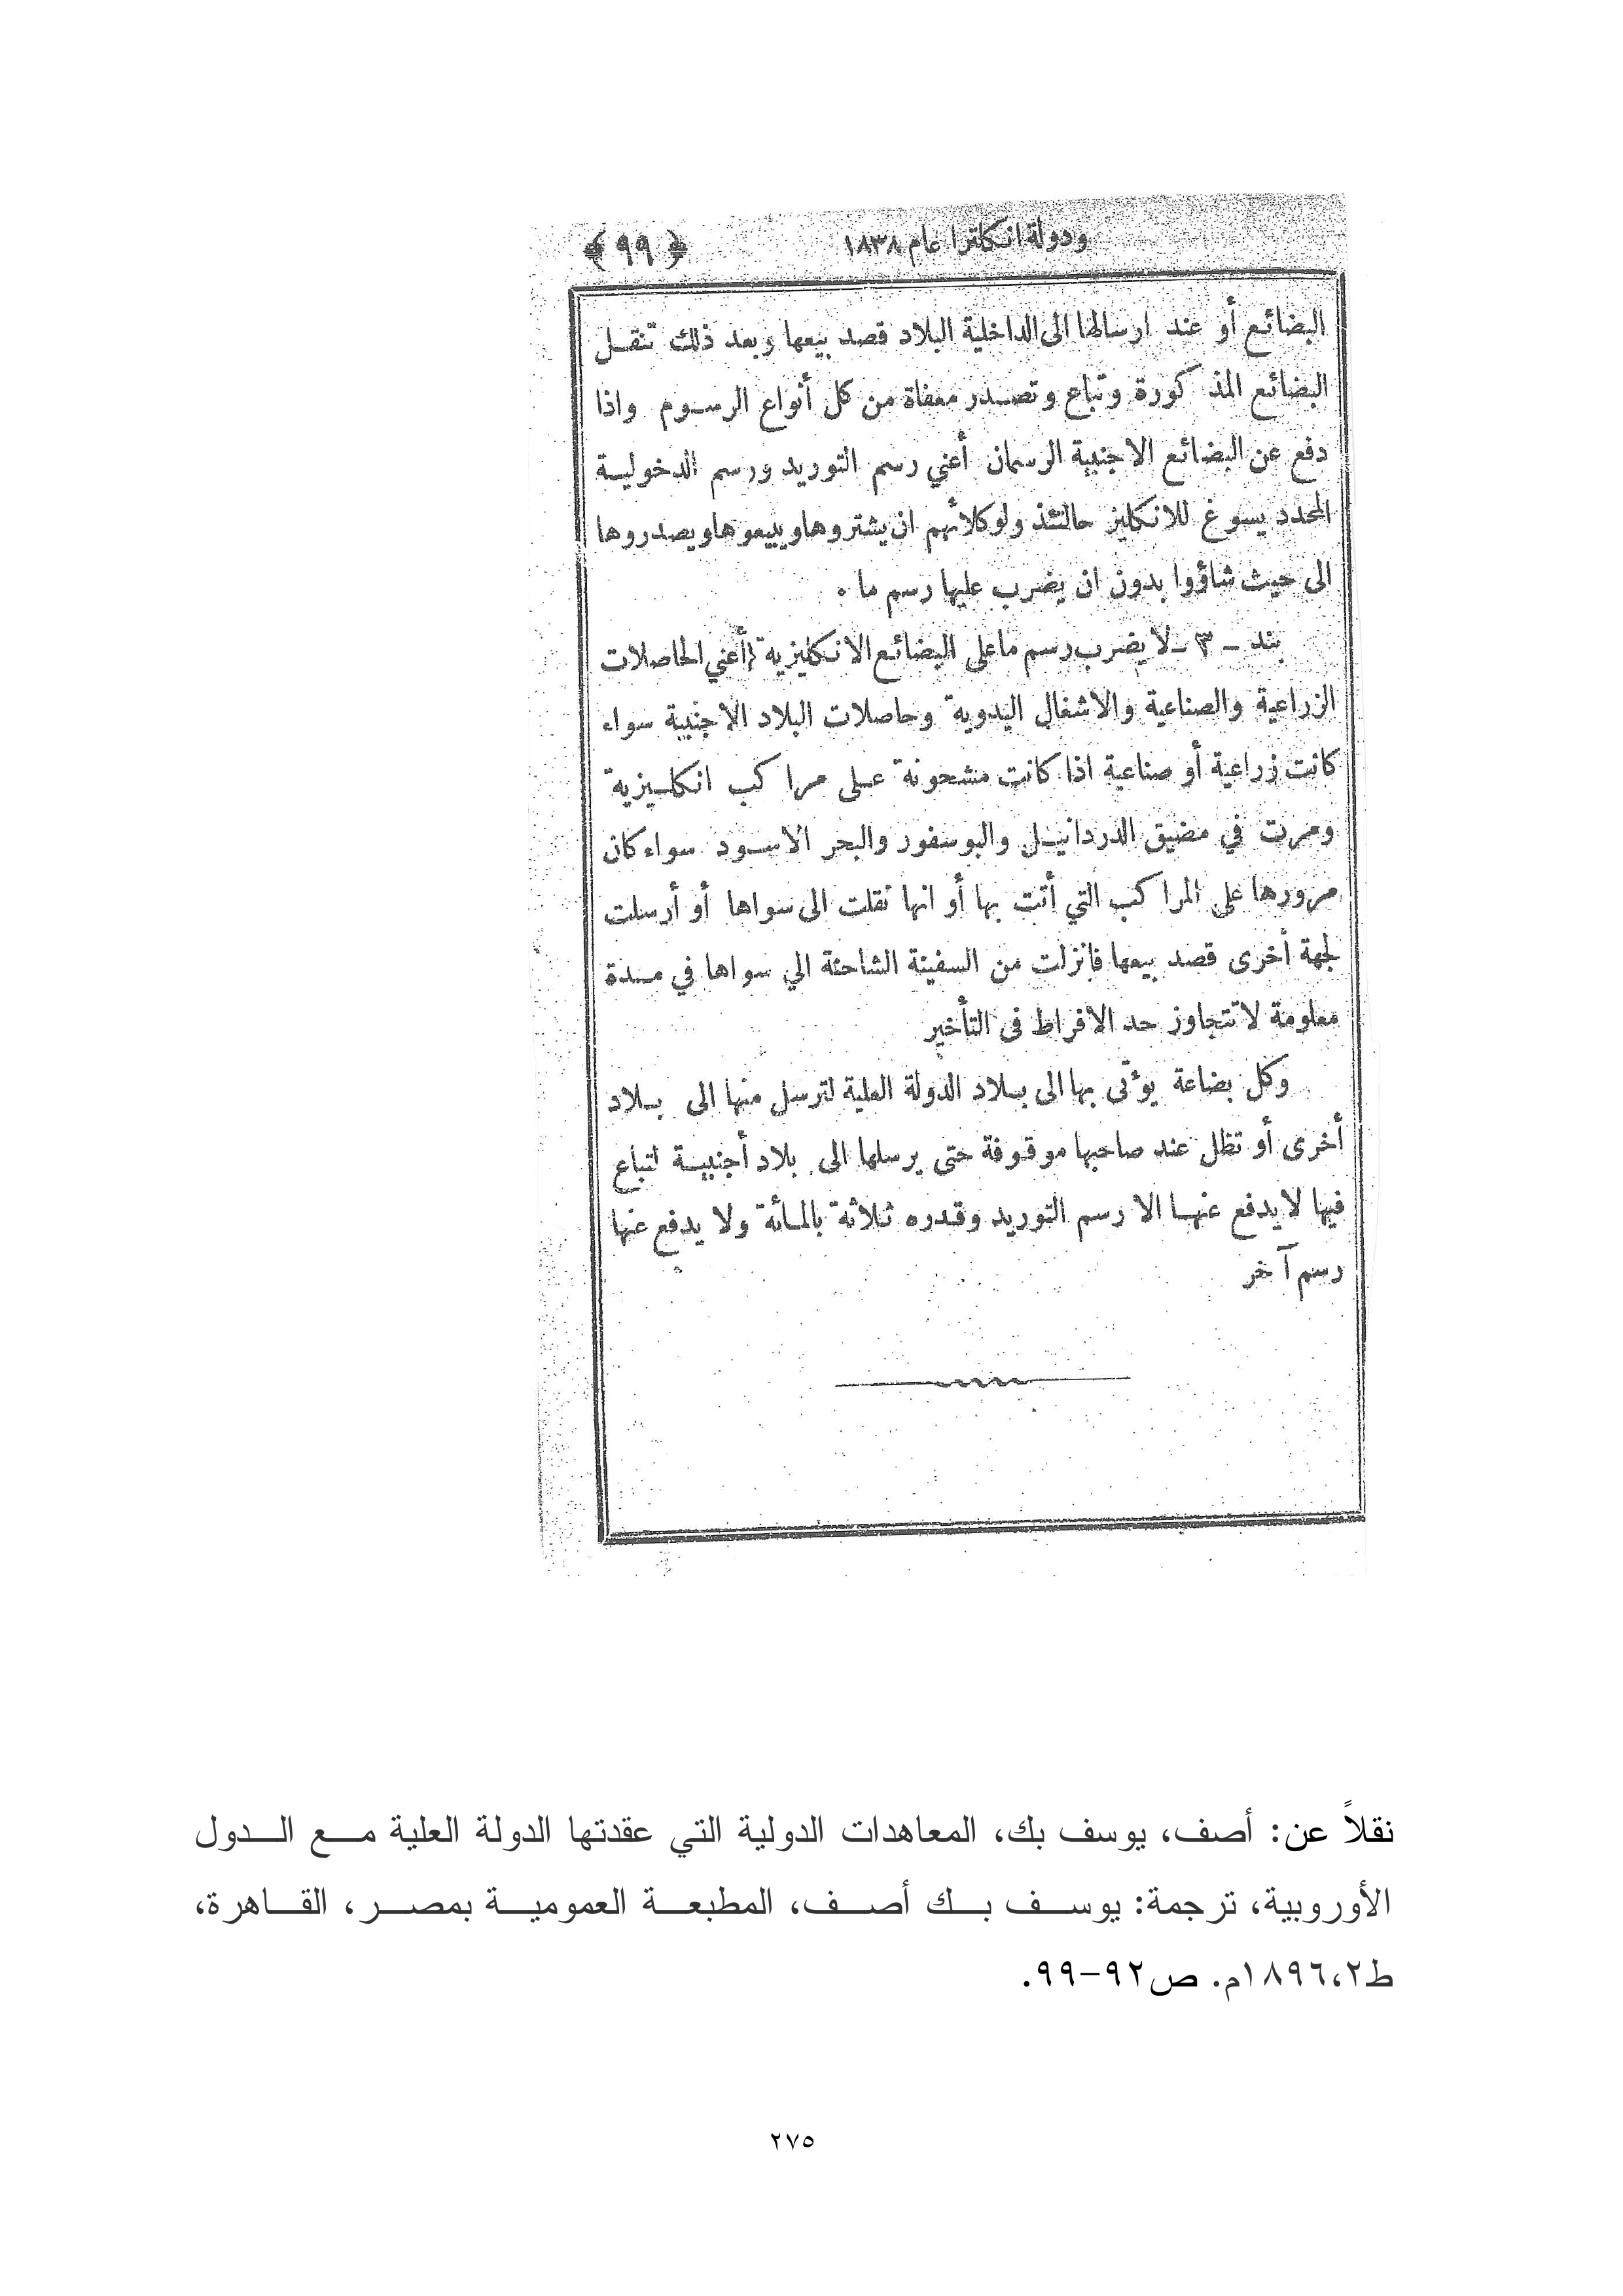 ودولة انكلترا عام ١٨٣٨ ﴿ ٩٩ ﴾
البضائع أو عند ارسالها الى الداخلية البلاد قصد بيعها وبعد ذلك تنقل
البضائع المذ كورة وتباع وتصدر معفاة من كل أنواع الرسوم واذا
دفع عن البضائع الاجنبية الرسمان أعني رسم التوريد ورسم الدخولية
المحدد يسوغ للانكليز حالتئذ ولوكلائهم ان يشتروها ويبيعوها ويصدروها
الى حيث شاؤوا بدون ان يضرب عليها رسم ما ٠
بند ـ ٣ ـ لا يضرب رسم ما على البضائع الانكليزية (أعني الحاصلات
الزراعية والصناعية والاشغال اليدوية وحاصلات البلاد الاجنبية سواء
كانت زراعية أو صناعية اذا كانت مشحونة على مرا كب انكليزية
ومرت في مضيق الدردانيل والبوسفور والبحر الاسود سواء كان
مرورها على المرا كب التي أتت بها أو انها نقلت الى سواها أو أرسلت
لجهة أخرى قصد بيعها فانزلت من السفينة الشاحنة الي سواها في مدة
معلومة لا تتجاوز حد الافراط في التأخير
وكل بضاعة يؤتى بها الى بلاد الدولة العلية لترسل منها الى بلاد
أخرى أو تظل عند صاحبها موقوفة حتى يرسلها الى بلاد أجنبية لتباع
فيها لا يدفع عنها الا رسم التوريد وقدره ثلاثة بالمائة ولا يدفع عنها
رسم آخر
نقلاً عن: أصف، يوسف بك، المعاهدات الدولية التي عقدتها الدولة العلية مع الدول
الأوروبية، ترجمة: يوسف بك أصف، المطبعة العمومية بمصر، القاهرة،
ط٢،١٨٩٦م. ص٩٢-٩٩.
٢٧٥